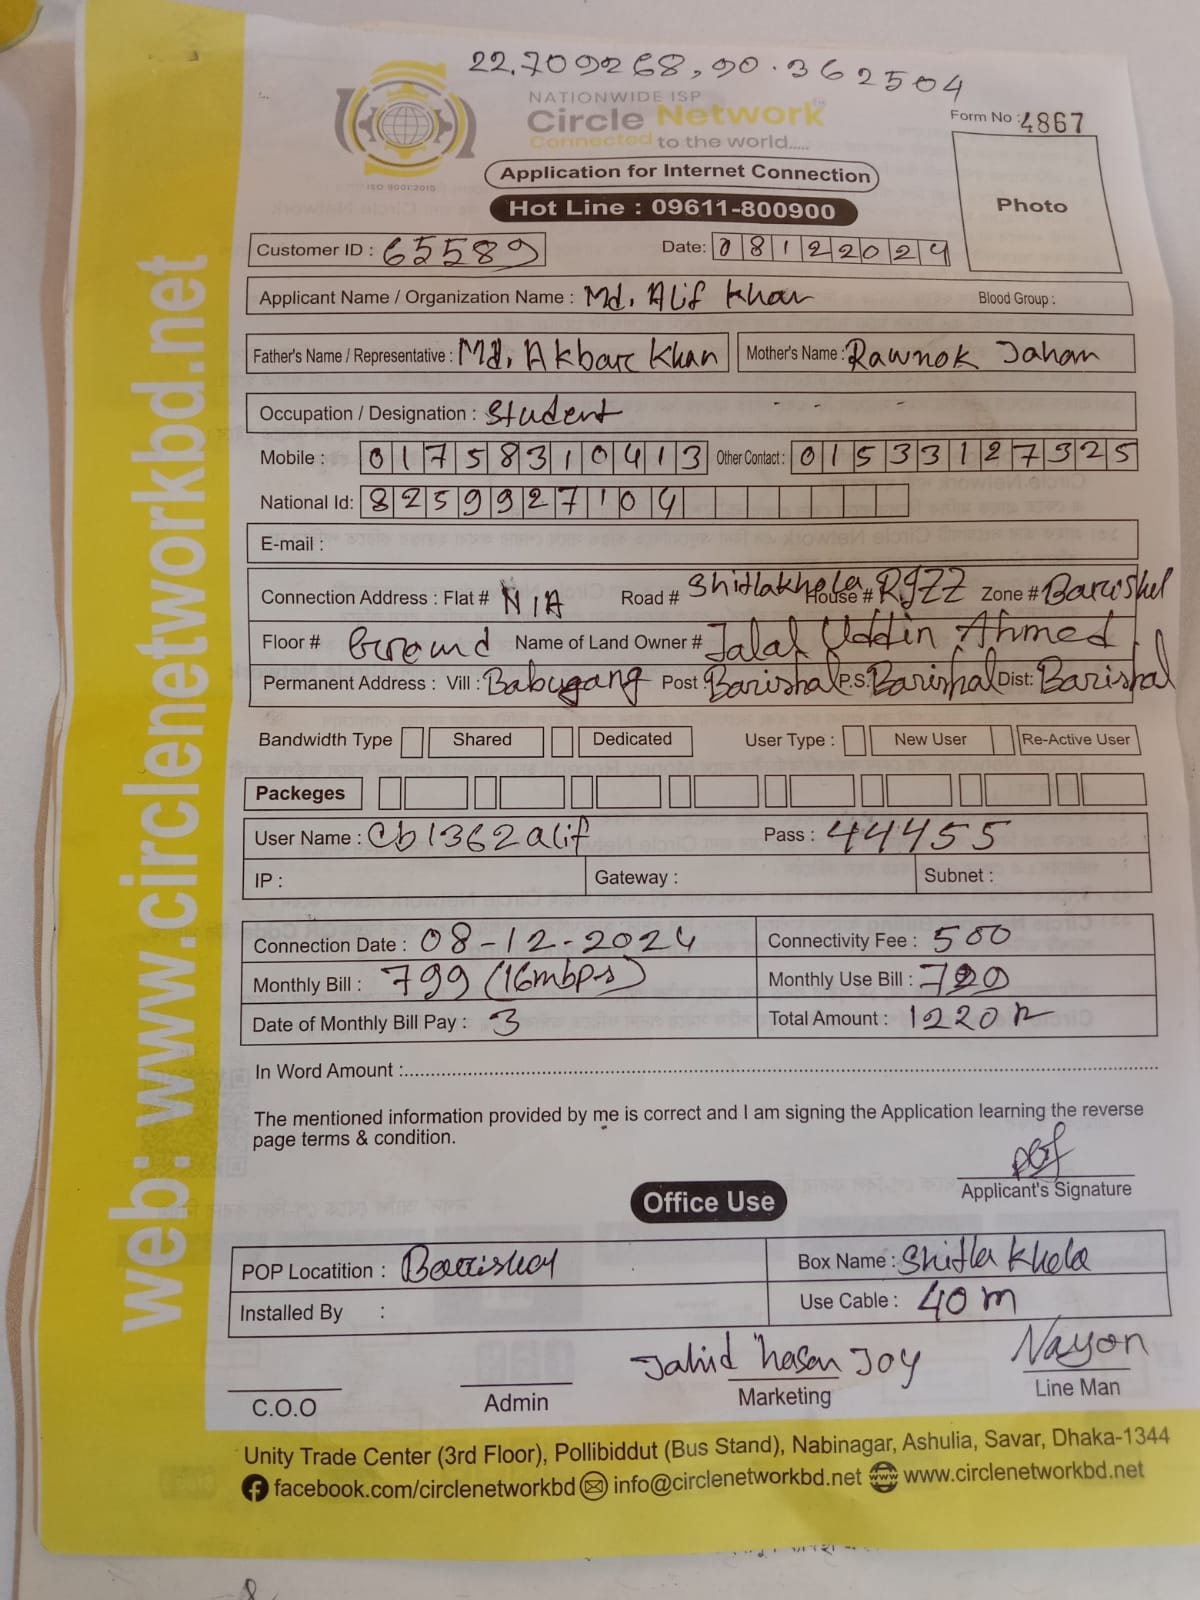 22.709268, 90.362504
NATIONWIDE ISP
Circle Network
Connected to the world.....
ISO 9001:2015
Form No : 4867
Application for Internet Connection
Hot Line : 09611-800900
Photo
Customer ID : 65589 Date: 08122024
Applicant Name / Organization Name : Md. Alif Khan Blood Group :
Father's Name / Representative : Md. Akbar Khan Mother's Name : Rawnok Jahan
Occupation / Designation : Student
Mobile : 01758310413 Other Contact : 01533127325
National Id: 8259927104
E-mail :
Connection Address : Flat # N/A Road # Shitlakhola House # Zone # Barishal
Floor # Ground Name of Land Owner # Jalal Uddin Ahmed
Permanent Address : Vill : Babugang Post : Barishal P.S: Barishal Dist: Barishal
Bandwidth Type Shared Dedicated User Type : New User Re-Active User
Packeges
User Name : cb1362alif Pass : 44455
IP : Gateway : Subnet :
Connection Date : 08-12-2024 Connectivity Fee : 500
Monthly Bill : 799 (16mbps) Monthly Use Bill : 720
Date of Monthly Bill Pay : 3 Total Amount : 1220
In Word Amount :
The mentioned information provided by me is correct and I am signing the Application learning the reverse
page terms & condition.
Applicant's Signature
Office Use
POP Locatition : Barishal Box Name : Shitla Khola
Installed By : Use Cable : 40m
Jahid hasan Joy Nayon
C.O.O Admin Marketing Line Man
Unity Trade Center (3rd Floor), Pollibiddut (Bus Stand), Nabinagar, Ashulia, Savar, Dhaka-1344
facebook.com/circlenetworkbd info@circlenetworkbd.net www.circlenetworkbd.net
web: www.circlenetworkbd.net